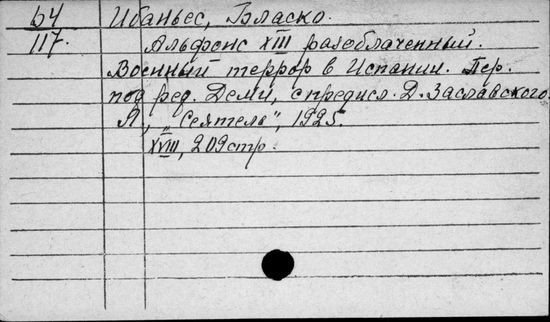 64 Ибаньес, Бласко.
117. Альфонс XIII разоблаченный.
Военный террор в Испании. Пер.
под ред. Деми, с предисл. Д. Заславского.
Л., „Сеятель", 1925.
XVIII, 209 стр.